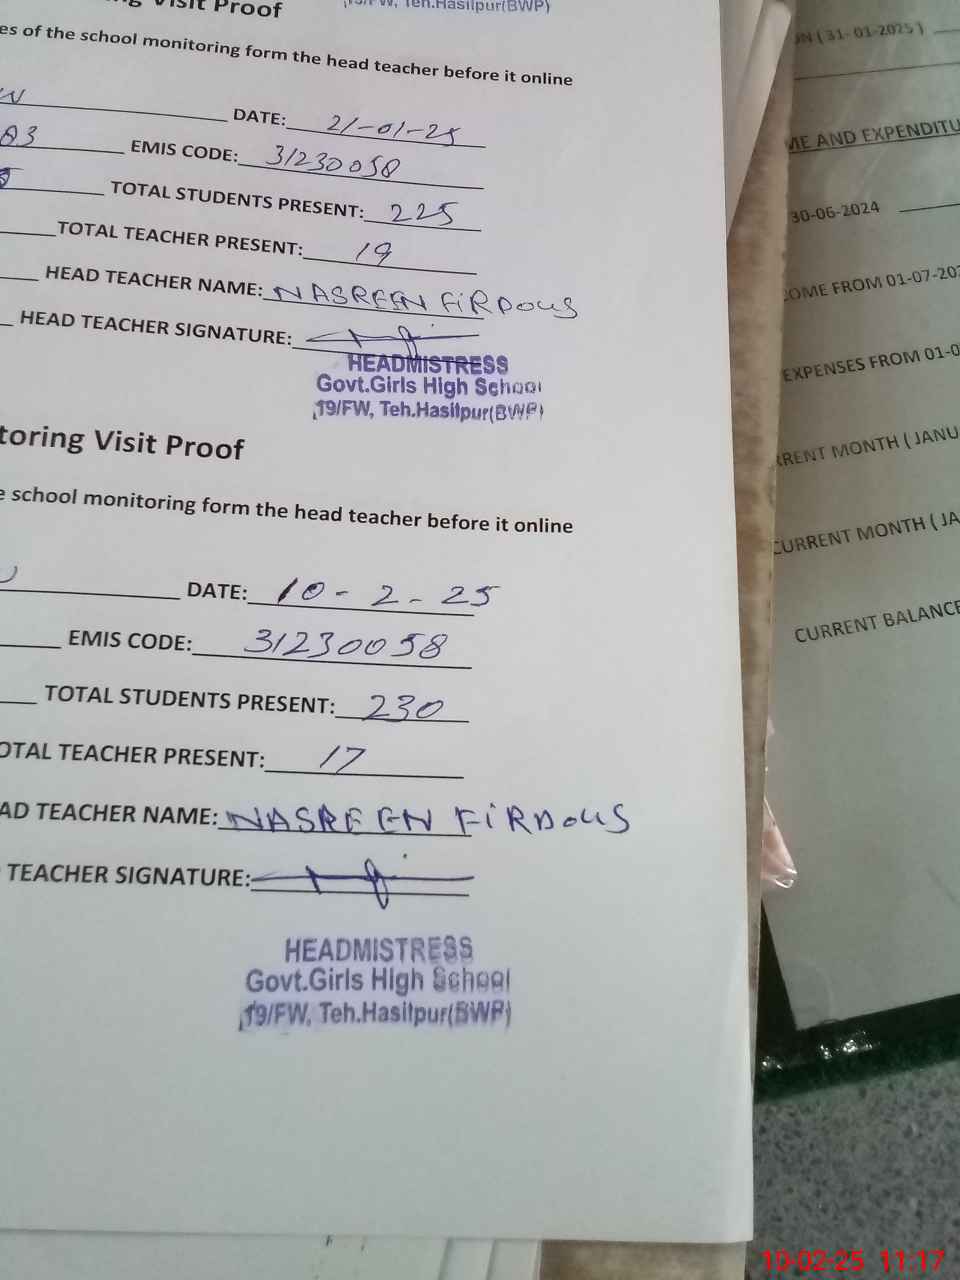 Visit Proof
19/FW, Teh.Hasilpur(BWP)
es of the school monitoring form the head teacher before it online
DATE: 21-01-25
EMIS CODE: 31230058
TOTAL STUDENTS PRESENT: 225
TOTAL TEACHER PRESENT: 19
HEAD TEACHER NAME: NASREEN FiRDOUS
HEAD TEACHER SIGNATURE:
HEADMISTRESS
Govt.Girls High School
19/FW, Teh.Hasilpur(BWP)
toring Visit Proof
e school monitoring form the head teacher before it online
DATE: 10-2-25
EMIS CODE: 31230058
TOTAL STUDENTS PRESENT: 230
OTAL TEACHER PRESENT: 17
AD TEACHER NAME: NASREEN FiRDOUS
TEACHER SIGNATURE:
HEADMISTRESS
Govt.Girls High School
19/FW, Teh.Hasilpur(BWP)
ON ( 31-01-2025 )
ME AND EXPENDITU
30-06-2024
COME FROM 01-07-202
EXPENSES FROM 01-0
RRENT MONTH ( JANU
CURRENT MONTH ( JA
CURRENT BALANCE
10-02-25 11:17